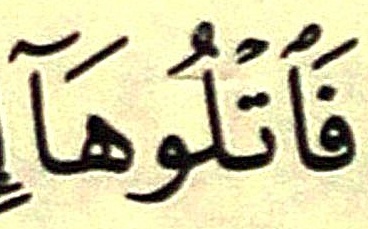 فَٱتْلُوهَآ